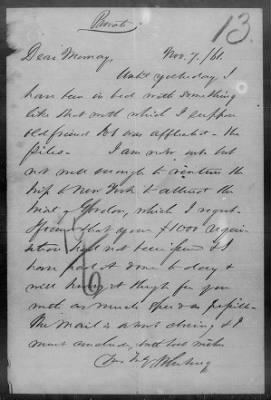 Private
13
Dear Murray, Nov. 7. /61.
Until yesterday I
have been in bed with something
like that with which I suppose
old friend Job was afflicted - the
piles - I am now out but
not well enough to venture the
trip to New York to attend the
trial of Gordon, which I regret.
I that your $1000 requi-
sition had not been &amp; I
have had it done to day &amp;
will it through for you
with as much speed as possible -
The mail is a closing &amp; I
must conclude, with best wishes